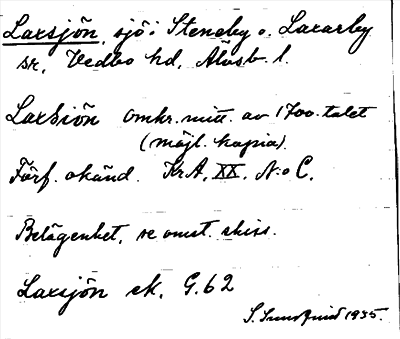 Laxsjön, sjö i Steneby o. Laxarby
sn, Vedbo hd, Älvsb. l.
Laxsiön omkr. mitt. av 1700-talet
(möjl. kopia).
Förf. okänd. KrA. XX. N:o C.
Belägenhet, se omst. skiss.
Laxsjön ek. G.62
S. Sundquist 1935.